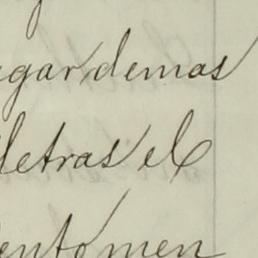 gar demas
letras el
ento men